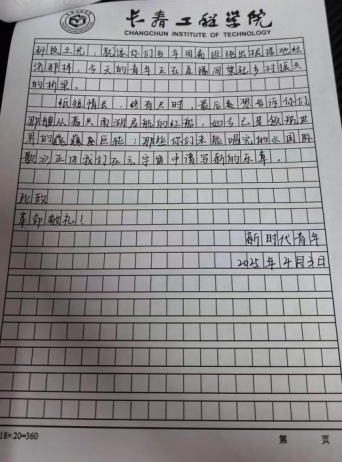 长春工程学院
CHANGCHUN INSTITUTE OF TECHNOLOGY
科技之光，就像你们当年用面
济那样，今天的青年正在直播间架起乡村振兴
的桥梁。
纸短情长，终有尽时。最后想告诉你们
那艘从南湖启航的红船，如今已是
界的巨轮；那些你们未能唱完的
歌，正由我们在元宇宙中谱写新的乐章。
此致
革命敬礼！
新时代青年
2025年4月3日
18×20=360
第 页